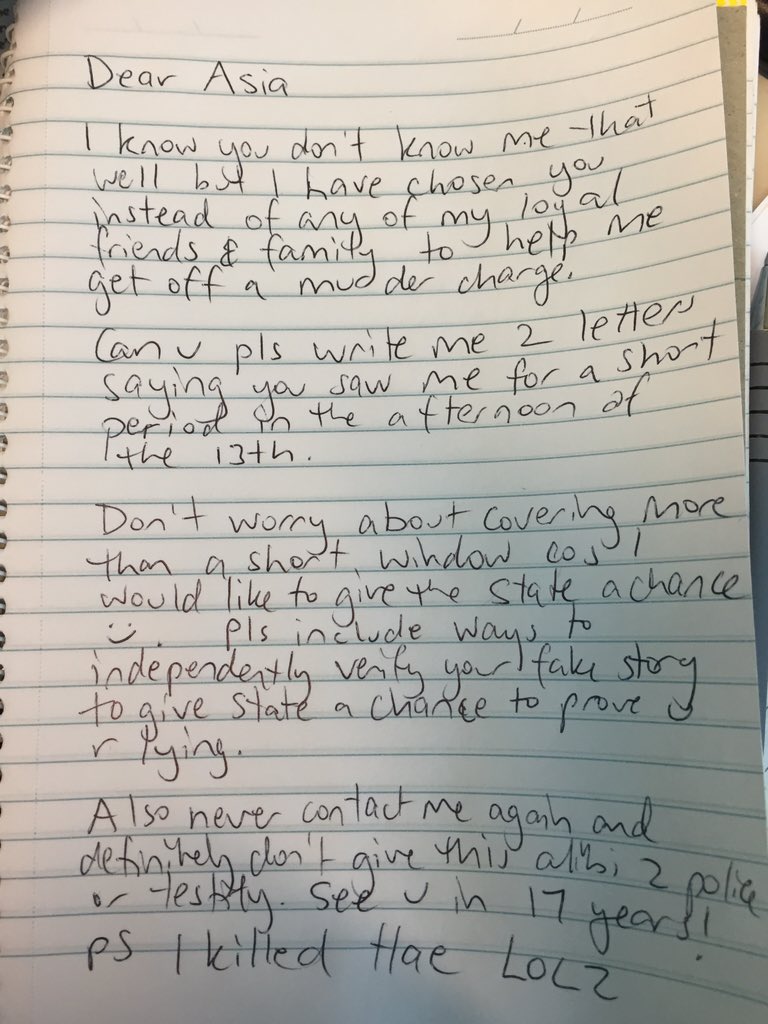 Dear Asia
I know you don't know me that
well but I have chosen you
instead of any of my loyal
friends & family to help me
get off a mudder charge.
Can u pls write me 2 letters
saying you saw me for a short
period in the afternoon of
the 13th.
Don't worry about covering more
than a short window cos I
would like to give the state a chance
:). Pls include ways to
independently verify your fake story
to give state a chance to prove u
r lying.
Also never contact me again and
definitely don't give this alibi 2 police
or testify. See u in 17 years!
ps I killed Hae LOLZ